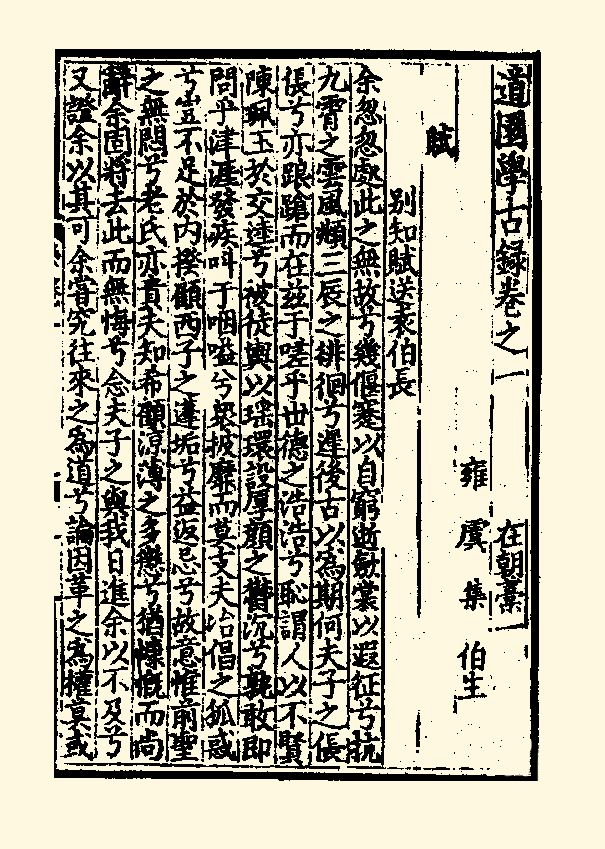 道園學古録巻之一　在朝藁一
雍虞集伯生
賦
別知賦送袁伯長
余忽忽處此之無故兮幾偃蹇以自窮逝歛裳以遐征兮抗
九霄之雲風頫三辰之徘徊兮遅後古以為期何夫子之倀
倀兮亦踉蹌而在兹于嗟乎世德之浩浩兮恥謂人以不賢
陳珮玉於交逵兮被徒輿以瑶環設厚顔之沉兮孰敢即
問乎津涯發疾呌于咽嗌兮衆披靡而莫支夫治倡之狐惑
兮豈不足於内揆顧西子之違垢兮益返忌兮故意惟前聖
之無悶兮老氏亦貴夫知希顧涼薄之多懲兮猶慄慨而尚
辭余固將去此而無悔兮念夫子之與我日進余以不及兮
又證余以其可余甞究往來之為道兮論因革之為權莫或